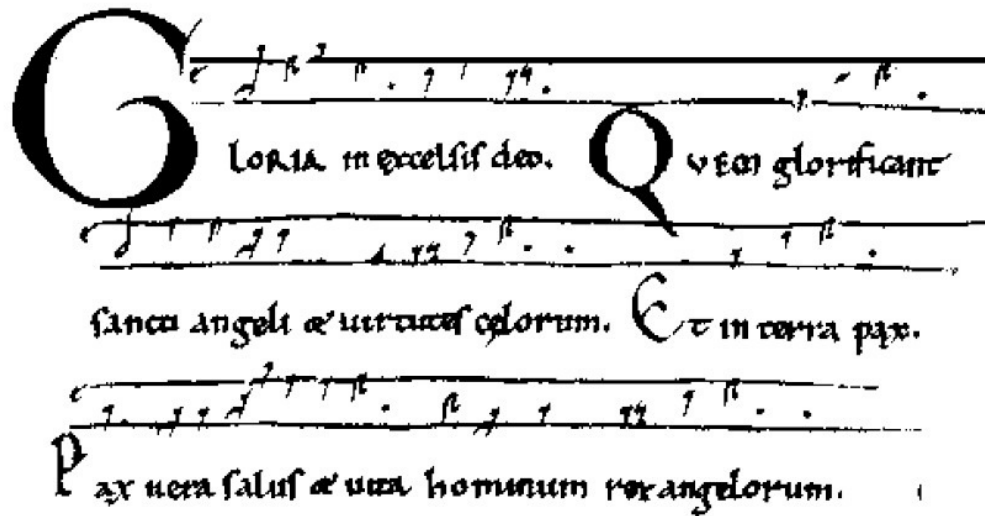 GLORIA in excelsis deo. QVEM glorificant
sancti angeli & uirtutes cęlorum. Et in terra pax.
Pax uera salus & uita hominum rex angelorum.